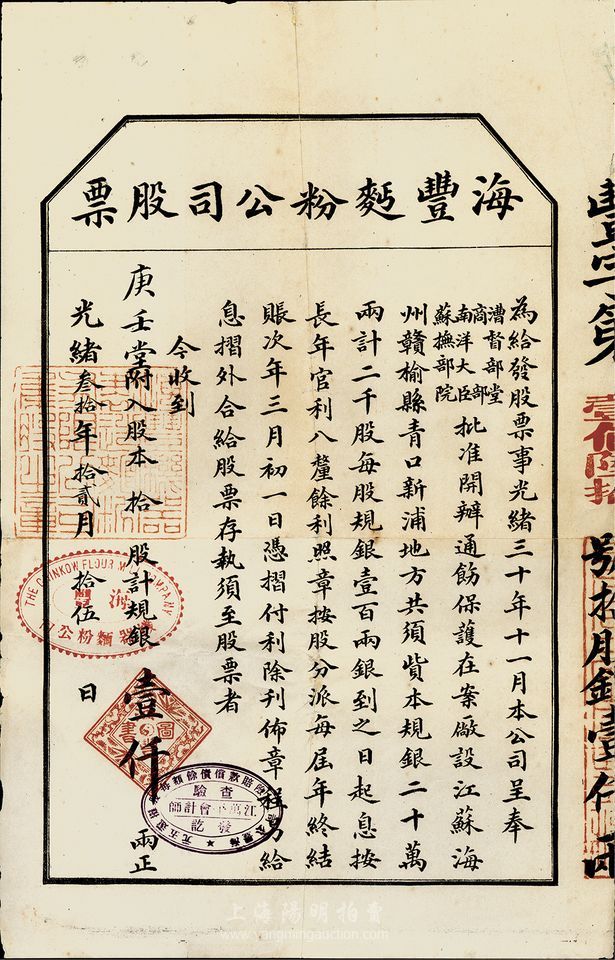 海豐麪粉公司股票
為給發股票事光緒三十年十一月本公司呈奉
漕督部堂
商部
南洋大臣
蘇撫部院
批准開辦通飭保護在案廠設江蘇海
州贛榆縣青口新浦地方共須貲本規銀二十萬
兩計二千股每股規銀壹百兩銀到之日起息按
長年官利八釐餘利照章按股分派每屆年終結
賬次年三月初一日憑摺付利除刊佈章程另給
息摺外合給股票存執須至股票者
今收到
庚壬堂附入股本 拾 股計規銀 壹仟 兩正
光緒叁拾年拾貳月 拾伍 日
壹佰陸拾
號拾股銀壹仟兩
THE CHINKOW FLOUR MILL COMPANY
海豐
製麵粉公司
圖書
查驗
會計師
發訖
上海陽明拍賣
www.yangmingauction.com